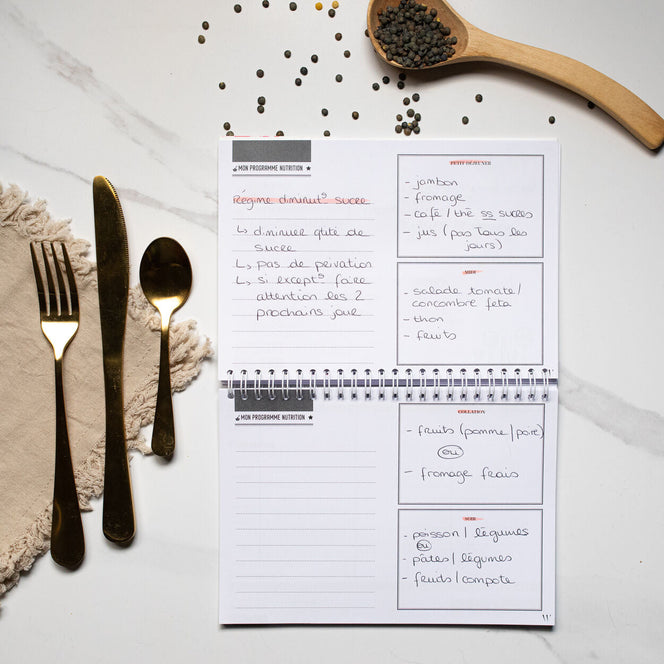 MON PROGRAMME NUTRITION
Régime diminut° sucre
↳ diminuer qtité de
sucre
↳ pas de privation
↳ si except° faire
attention les 2
prochains jour
PETIT DEJEUNER
- jambon
- fromage
- café / thé ss sucres
- jus (pas tous les
jours)
MIDI
- salade tomate/
concombre feta
- thon
- fruits
MON PROGRAMME NUTRITION
COLLATION
- fruits (pomme/poire)
ou
- fromage frais
SOIR
- poisson / légumes
ou
- pâtes / légumes
- fruits / compote